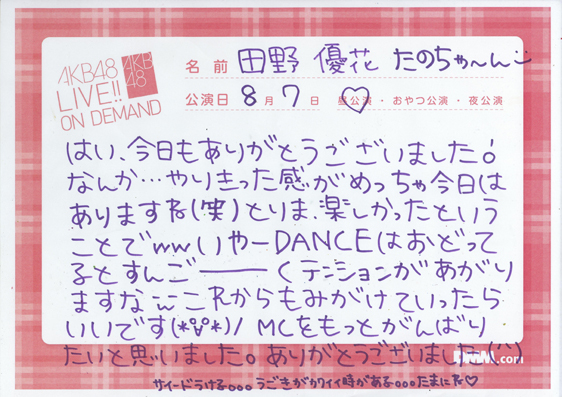 AKB48
LIVE!!
ON DEMAND
AKB
48
名前 田野 優花 たのちゃ〜ん
公演日 8月7日 昼公演・おやつ公演・夜公演
はい、今日もありがとうございました!
なんか…やりきった感がめっちゃ今日は
ありますね(笑)とりま、楽しかったという
ことでwwいやーDANCEはおどって
るとすんご――くテンションがあがり
ますな これからもみがけていったら
いいです(*^▽^*)/ MCをもっとがんばり
たいと思いました。ありがとうございました(^^)
.com
サイードうける。。。うごきがカワイイ時がある。。。たまにね♡